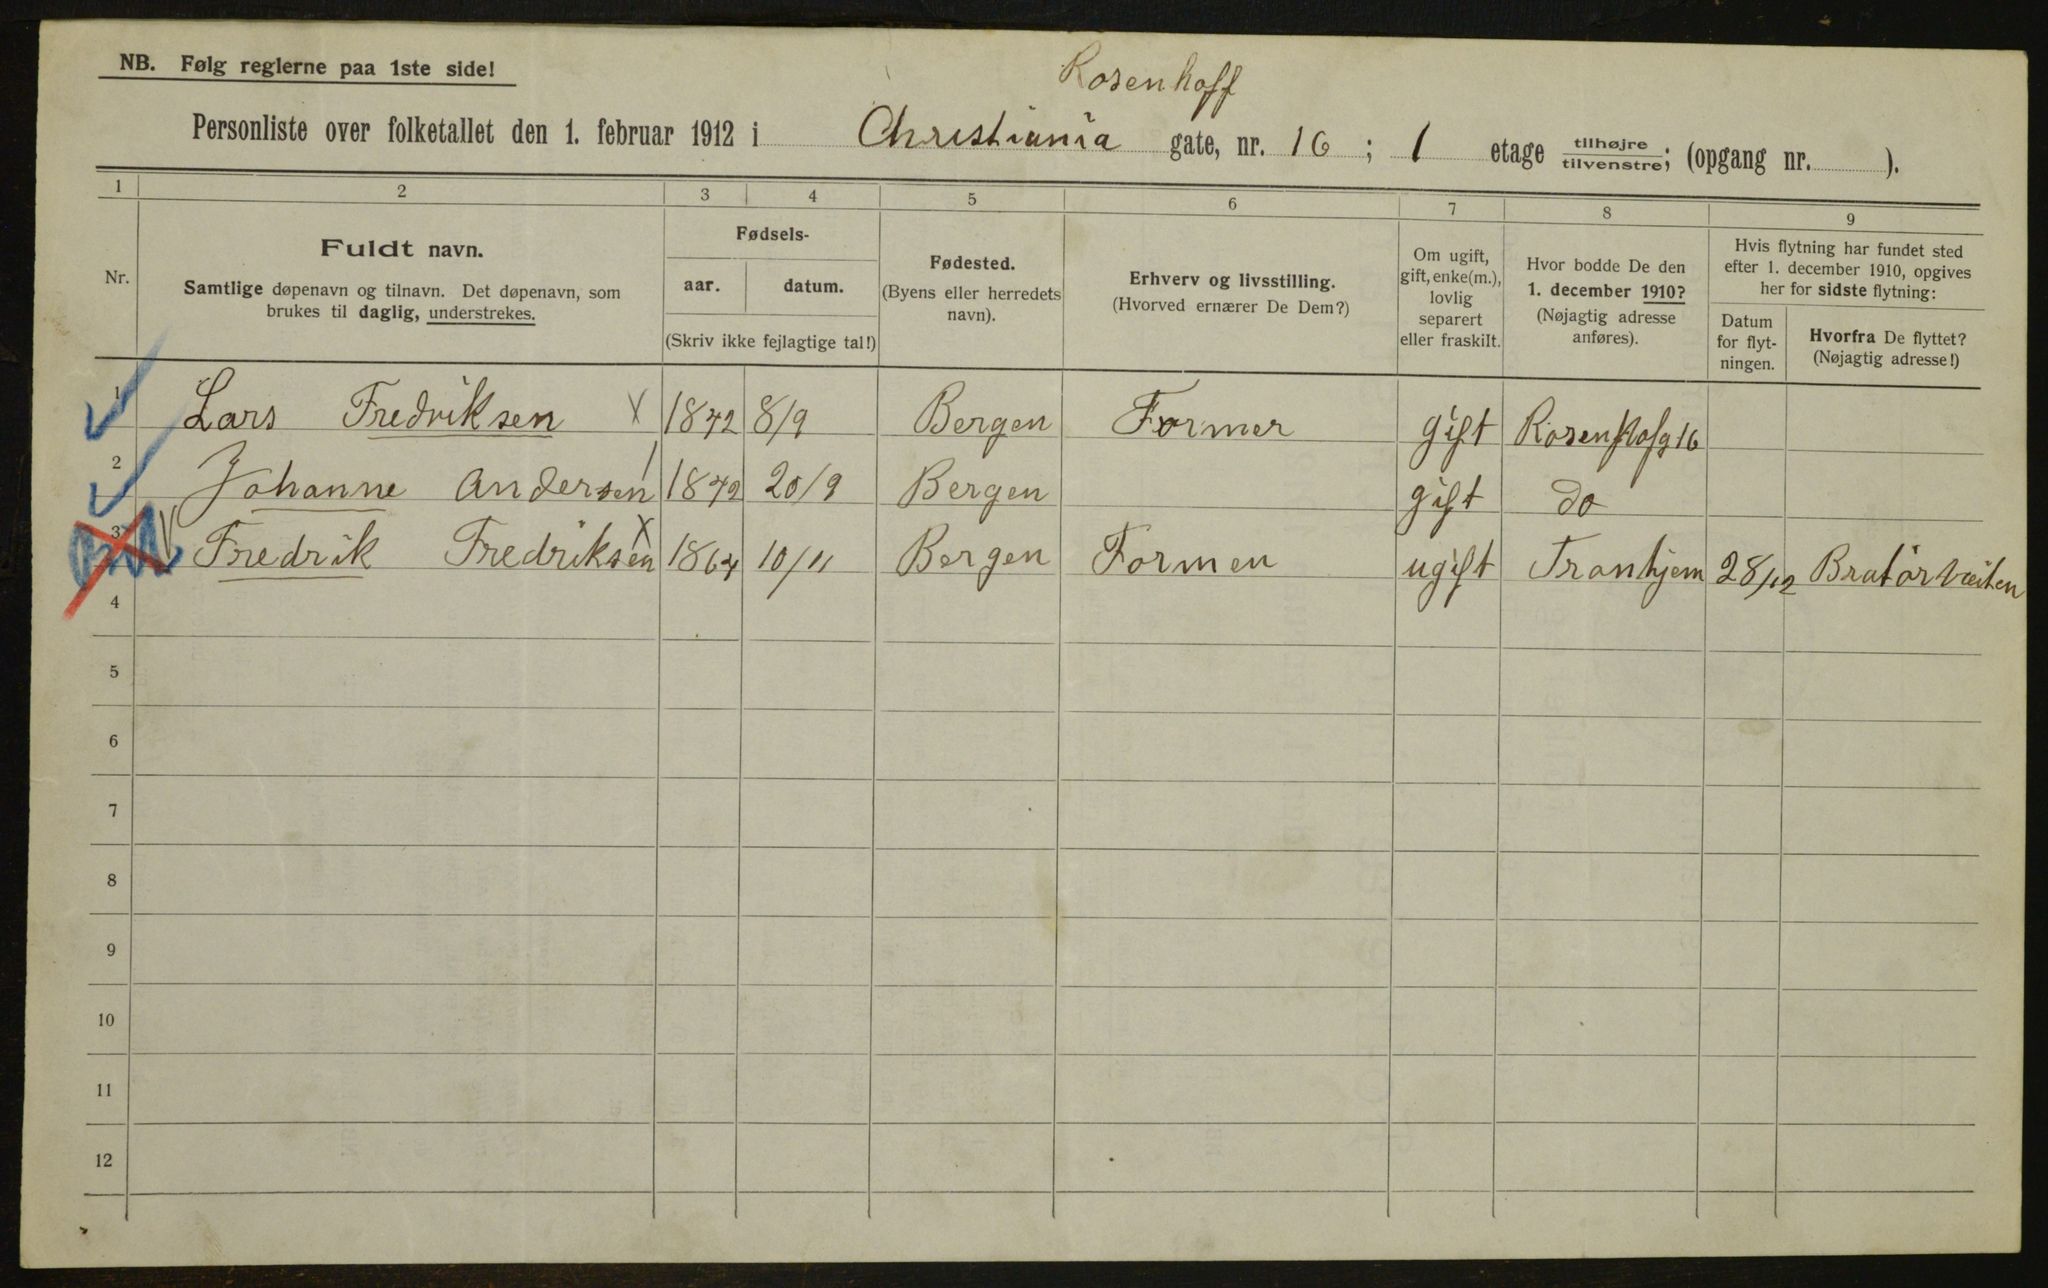 NB. Følg reglerne paa 1ste side!
Rosenhoff
Personliste over folketallet den 1. februar 1912 i Christiania gate, nr. 16 ; 1 etage tilhøjre tilvenstre; (opgang nr. ).
1 2 3 4 5 6 7 8 9
Nr.
Fuldt navn.
Samtlige døpenavn og tilnavn. Det døpenavn, som
brukes til daglig, understrekes.
Fødsels-
aar. datum.
(Skriv ikke fejlagtige tal!)
Fødested.
(Byens eller herredets
navn).
Erhverv og livsstilling.
(Hvorved ernærer De Dem?)
Om ugift,
gift, enke(m.),
lovlig
separert
eller fraskilt.
Hvor bodde De den
1. december 1910?
(Nøjagtig adresse
anføres).
Hvis flytning har fundet sted
efter 1. december 1910, opgives
her for sidste flytning:
Datum
for flyt-
ningen.
Hvorfra De flyttet?
(Nøjagtig adresse!)
1 Lars Fredriksen X 1872 8/9 Bergen Former gift Rosenhofg 16
2 Johanne Andersen 1872 20/9 Bergen gift do
3 Fredrik Fredriksen X 1864 10/11 Bergen Formen ugift Tronhjem 28/12 Bratörveiten
4
5
6
7
8
9
10
11
12